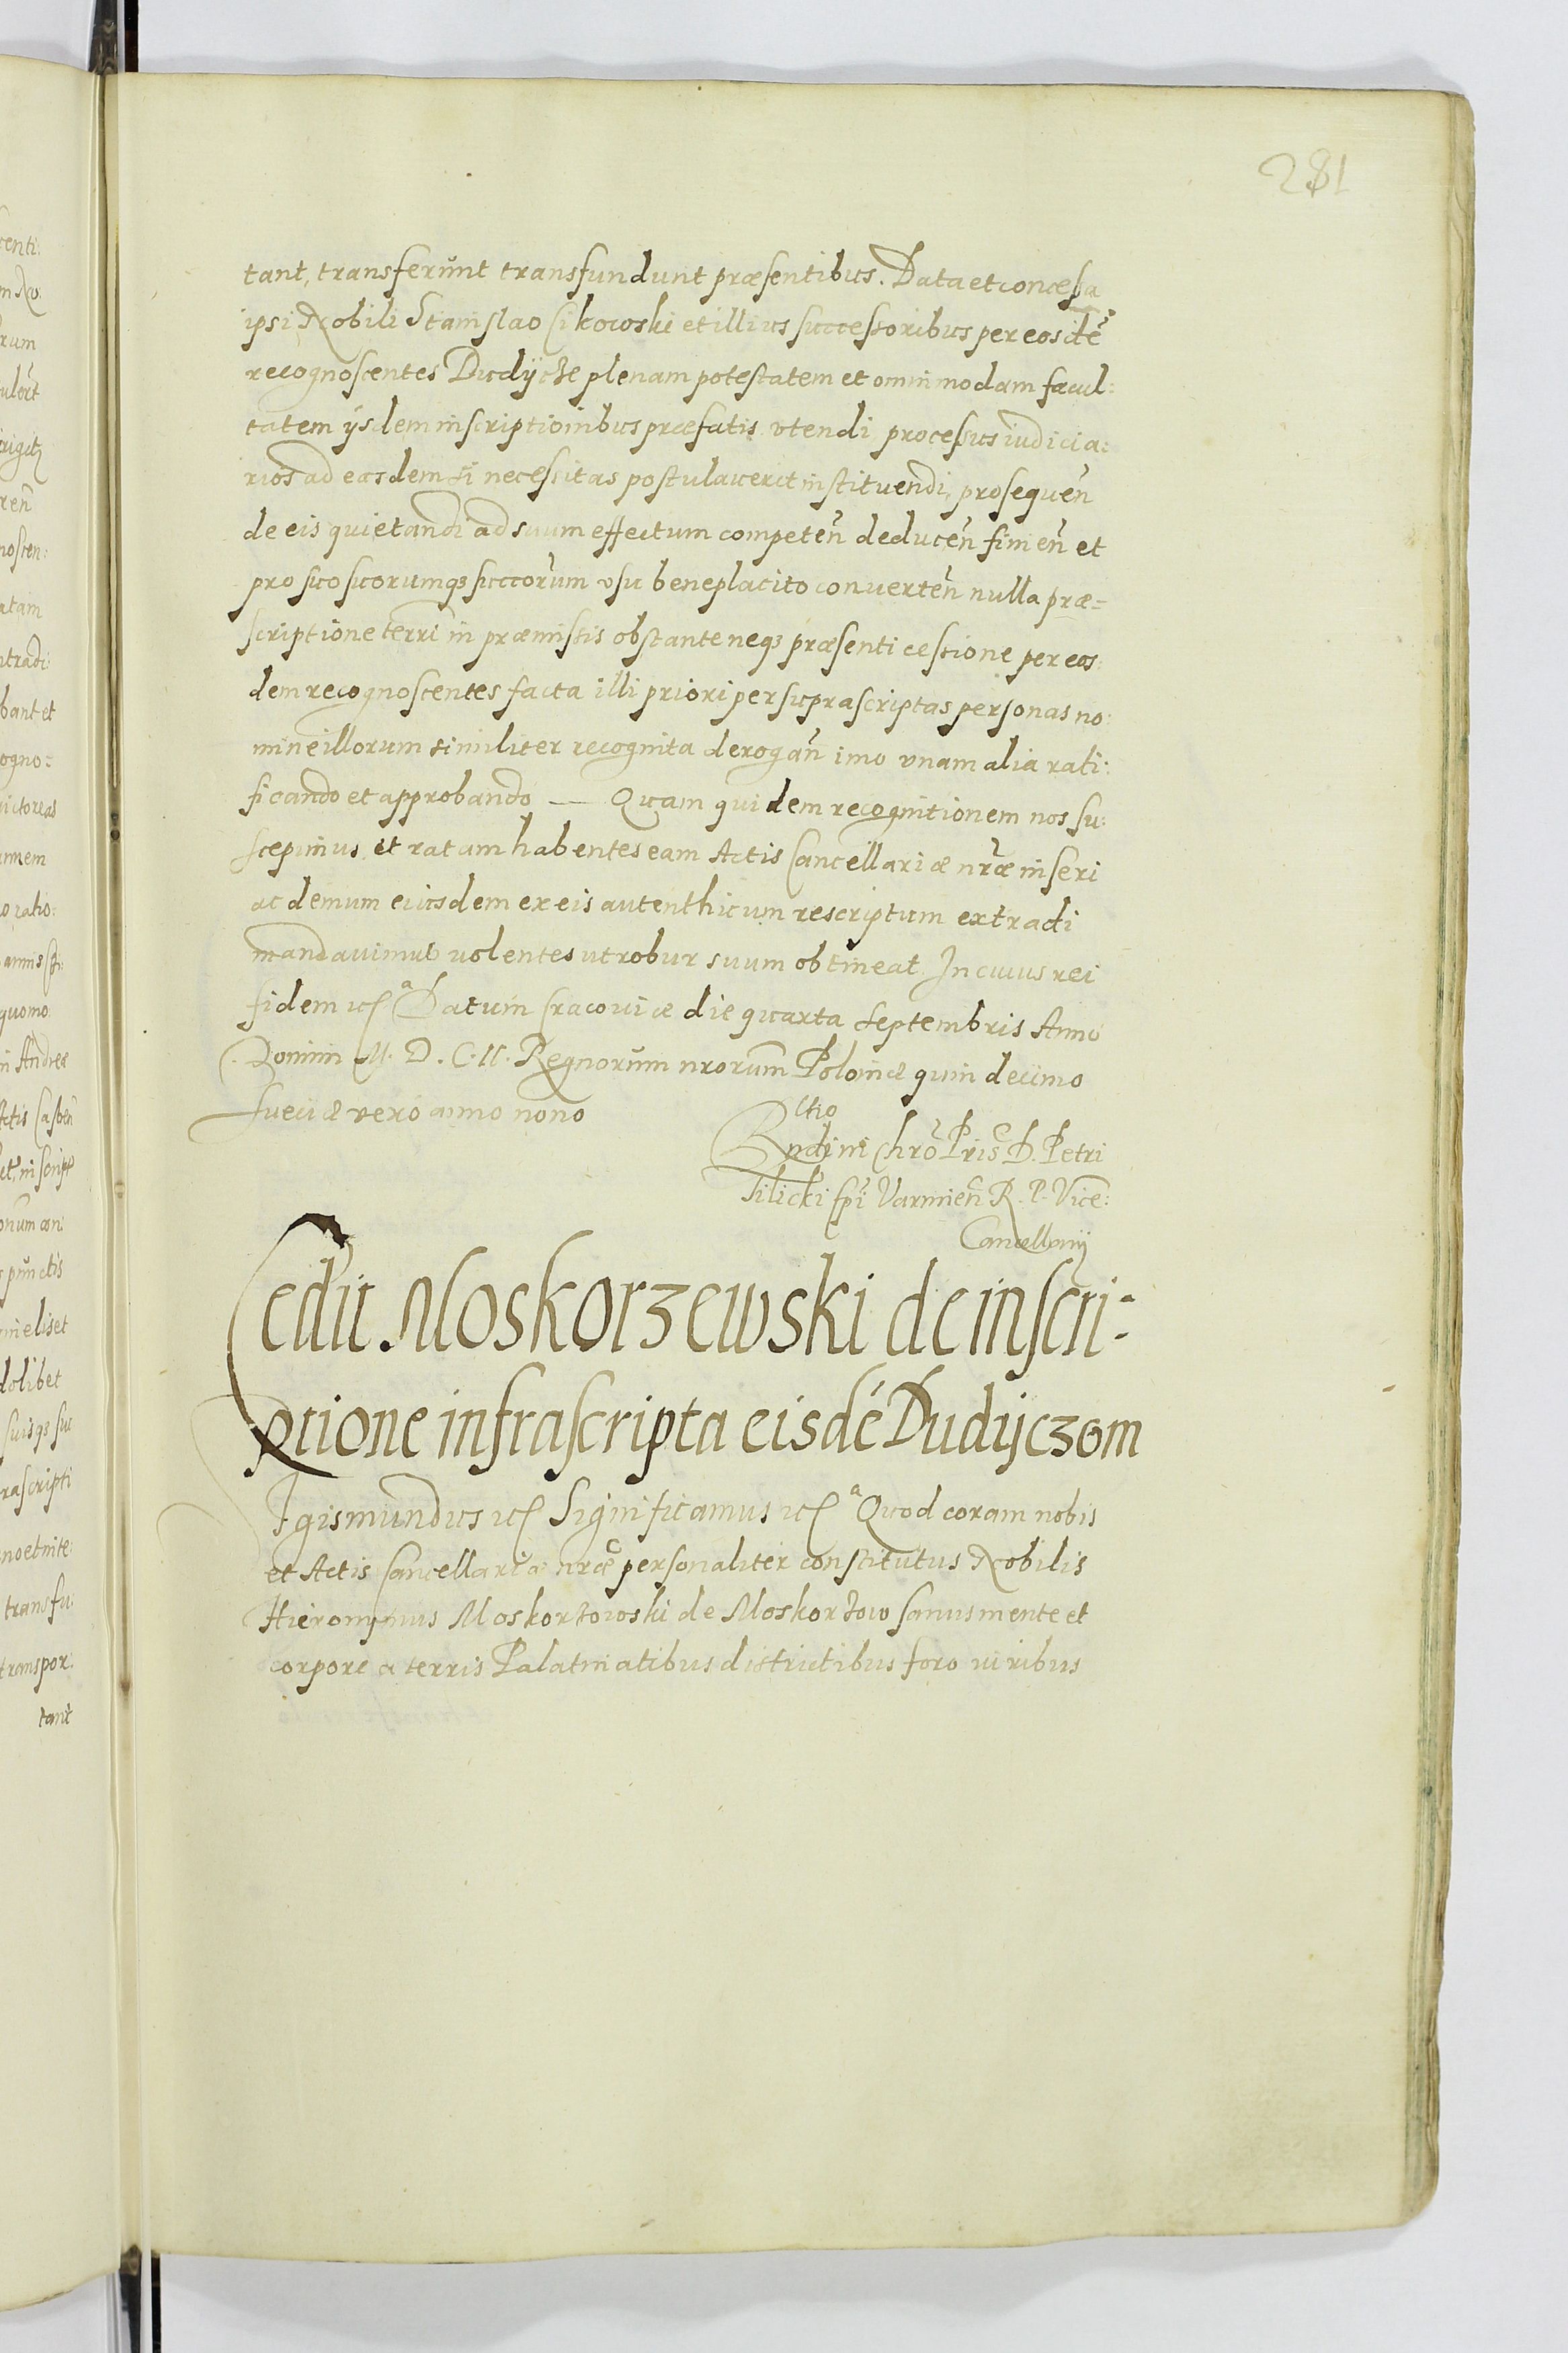 281
tant, transferunt transfundunt præsentibus. Data et concessa
ipsi Nobili Stanislao Cikowski et illius successoribus per eosdē
recognoscentes Dudycze plenam potestatem et omnimodam facul:
tatem ysdem inscriptionibus præfatis utendi processus iudicia:
rios ad easdem si necessitas postulaverit instituendi, prosequeñ
de eis quietandi ad suum effectum competeñ deduceñ fineñ et
pro suo suorumqȝ succorum usu beneplacito converteñ nulla præ=
scriptione terrī in præmissis obstante neqȝ præsenti cessione per eos:
dem recognoscentes facta illi priori per suprascriptas personas no:
mine illorum similiter recognita derogañ imo unam alia rati:
ficando et approbando — Quam quidem recognitionem nos su:
scepimus et ratam habentes eam Actis Cancellariæ nræ inseri
ac demum eiusdem ex eis autenthicum rescriptum extradi
mandavimus volentes ut robur suum obtineat In cuius rei
fidem ꝛc̃ Datum Cracoviæ die quarta Septembris Anno
Domini M. D. C. II. Regnorum nrorum Poloniæ quindecimo
Sueciæ vero anno nono
ctio
Rndi in Chrō Pris D. Petri
Tilicki Epī Varmieñ R. P. Vice:
Cancellarij
Cedit Moskorzewski de inscri:
ptione infrascripta eisdē Dudijczom
Igismundus ꝛc̃ Significamus ꝛc̃ Quod coram nobis
et Actis Cancellariæ nræ personaliter constitutus Nobilis
Hieronymus Moskorzowski de Moskorzow sanus mente et
corpore a terris Palatinatibus districtibus foro iuribus